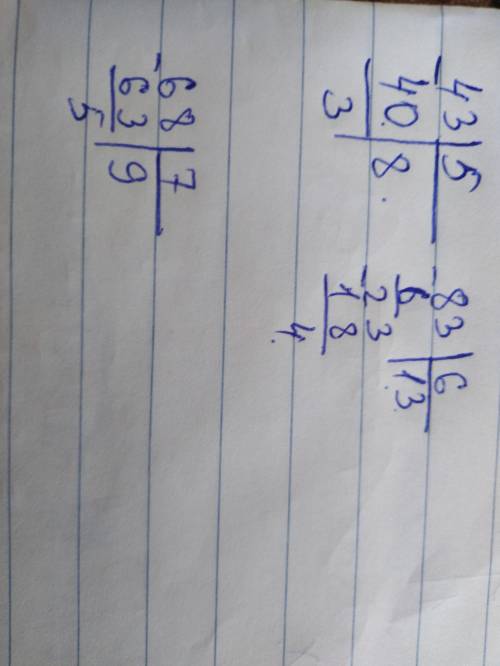 -43 | 5
40. | 8.
3
-83 | 6
6 | 13.
-23
18
4.
-68 | 7
63 | 9
5